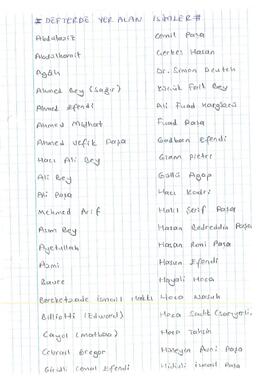 * DEFTERDE YER ALAN İSİMLER *
Abdülaziz
Abdülhamit
Agâh
Ahmed Bey (Sağır)
Ahmed Efendi
Ahmed Midhat
Ahmed Vefik Paşa
Hacı Ali Bey
Ali Bey
Ali Paşa
Mehmed Arif
Asım Bey
Ayetullah
Azmi
Bereketzade İsmail Hakkı
Billiotti (Edward)
Cayol (Matbaa)
Cebrail Gregor
Giridli Cemal Efendi
Cemil Paşa
Çerkes Hasan
Dr. Simon Deutch
Küçük Faik Bey
Ali Fuad
Fuad Paşa
Godban Efendi
Giam Pietri
Güllü Agop
Hacı Kadri
Halil Şerif Paşa
Hasan Bedreddin Paşa
Hasan Rami Paşa
Hasan Efendi
Hayali Hoca
Hoca Nasuh
Hoca Sadık
Hoca Tahsin
Hüseyin Avni Paşa
İsmail Paşa